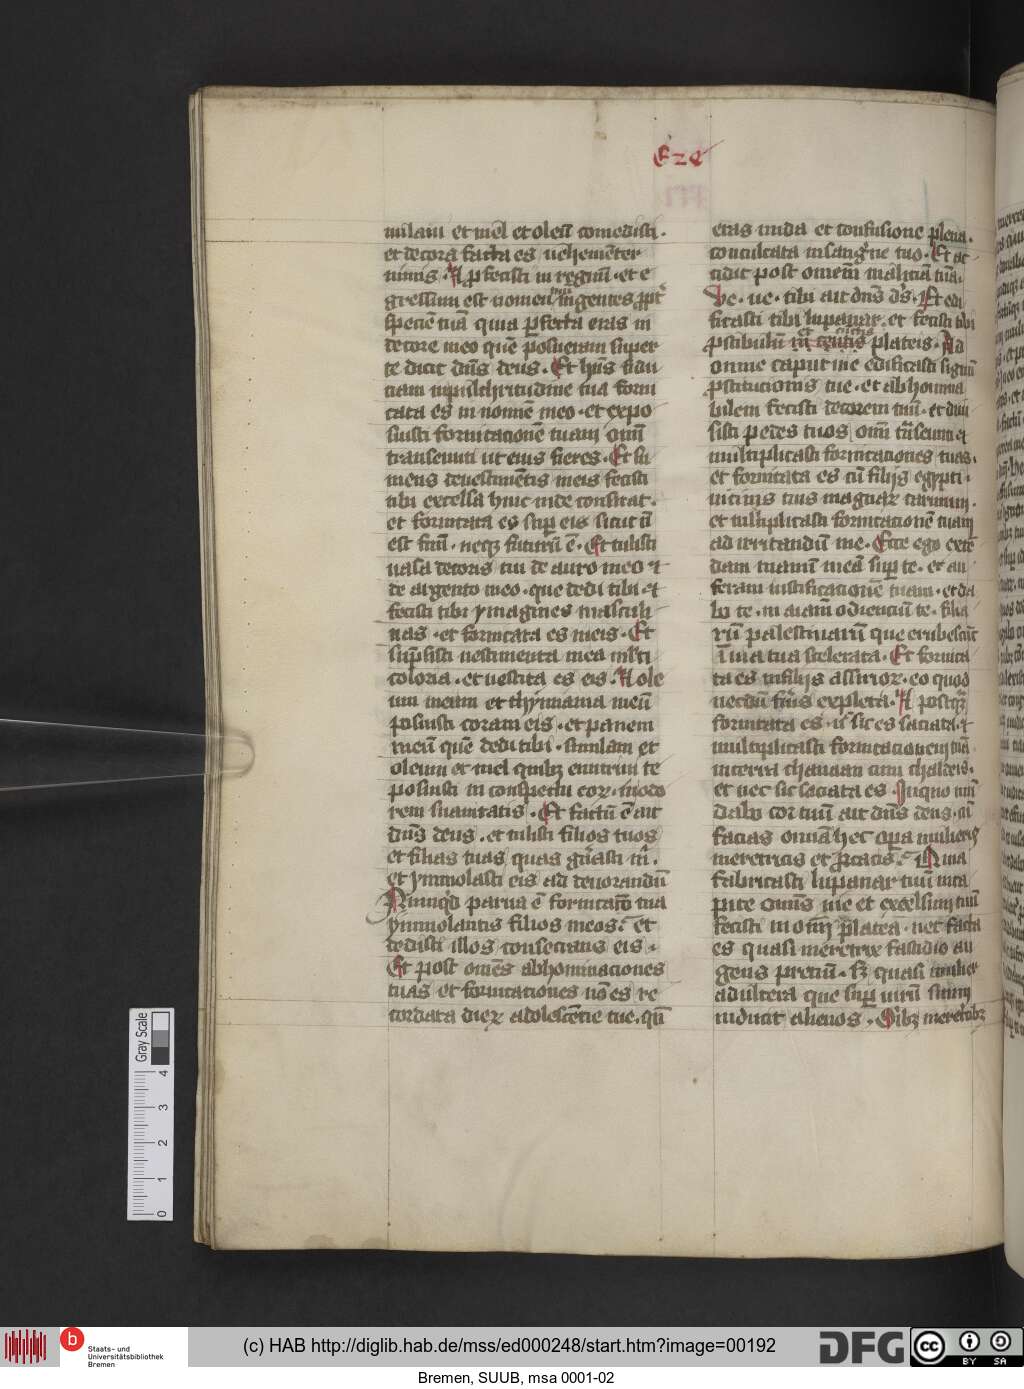 Eze
milam et mel et oleū comedisti ·
et decora facta es uehemēter
nimis · Ꝛ pfecisti in regnū · et e
gressum est nomen tuū in gentes ꝓpt̄
speciē tuā quia pfecta eras in
decore meo quē posueram super
te dicit dn̄s deus · Et hn̄s fidu
ciam in pulchritudine tua forni
cata es in nomīe meo · et expo
suisti fornicacionē tuam omī
transeunti ut eius fieres · Et su
mens deuestimētis meis fecisti
tibi excelsa hinc inde consu
et fornicata es sup eis sicut nō
est fcm̄ · neqꝫ futurū ē · Et tulisti
uasa decoris tui de auro meo ⁊
de argento meo · que dedi tibi · ⁊
fecisti tibi ymagines masculi
nas · et fornicata es in eis · Et
sūpsisti uestimenta mea mlti
coloria · et uestita es eis · Ꝛ ole
um meum et thymiama meū
posuisti coram eis · et panem
meū quē dedi tibi · similam et
oleum et mel quibꝫ enutriui te
posuisti in conspectu eoꝝ · in odo
rem suauitatis · Et factū ē ait
dn̄s deus · et tulisti filios tuos
et filias tuas quas gn̄asti m̄ ·
et ymmolasti eis ad deuorandū
Nunqd parua ē fornicatō tua
ymmolantis filios meos · et
dedisti illos consecrans eis ·
Et post omēs abhominaciones
tuas et fornicationes nō es re
cordata dieꝝ adolescētie tue · qn̄
eras nuda et confusione plena ·
conculcata in sangᵉne tuo · Et ac
cidit post omem maliciā tuā ·
Ve · ue · tibi ait dn̄s ds̄ · Et edi
ficasti tibi lupanar · et fecisti tibi
ꝓstibulū in plateis · Ad
omne caput uie edificasti signū
ꝓstitucionis tue · et abhomina
bilem fecisti decorem tuū · et diui
sisti pedes tuos omī tn̄seunti et
multiplicasti fornicaciones tuas ·
et fornicata es cū filijs egypti ·
uicinis tuis magnaꝝ carnium ·
et multiplicasti fornicacionē tuam
ad irritandū me · Ecce ego exte
dam manū meā sup te · et au
feram iustificacionē tuam · et da
bo te · in aiam odienciū te · filia
rū palestinarū que erubescūt
ī uia tua scelerata · Et fornica
ta es in filijs assirioꝝ · eo quod
necdum fuis expleta · Ꝛ postqꝫ
fornicata es · n̄ sic es saciata · ⁊
multiplicasti fornicacionem tuā
in terra chanaan cum chaldeis ·
et nec sic saciata es · In quo mū
dabo cor tuū ait dn̄s deus · cū
facias omīa hec opa mulieris
meretricis et ꝓcacis · Quia
fabricasti lupanar tuū in ca
pite omīs uie et excelsum tuū
fecisti in omī platea · nec facta
es quasi meretrix fastidio au
gens preciū · sꝫ quasi mulier
adultera que sup uirū suum
inducit alienos · Oibꝫ meretcibꝫ
Gray Scale
0 1 2 3 4
b
Staats- und
Universitätsbibliothek
Bremen
(c) HAB http://diglib.hab.de/mss/ed000248/start.htm?image=00192
DFG
cc BY SA
Bremen, SUUB, msa 0001-02